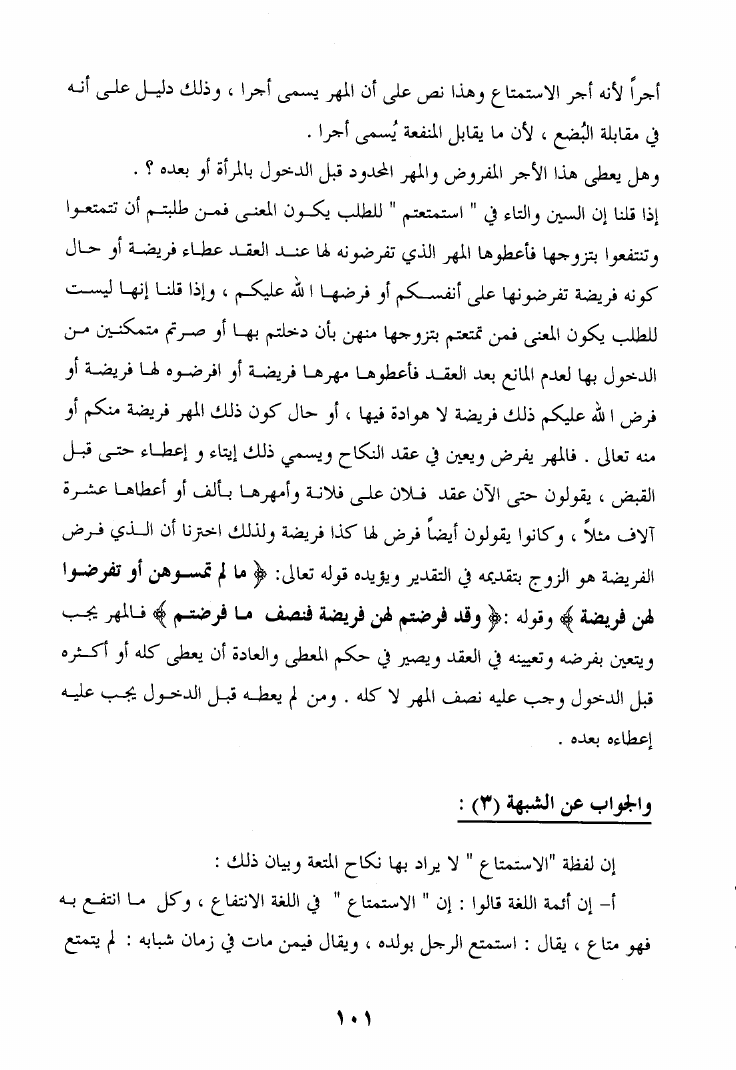 أجراً لأنه أجر الاستمتاع وهذا نص على أن المهر يسمى أجرا ، وذلك دليل على أنه
في مقابلة البُضع ، لأن ما يقابل المنفعة يُسمى أجرا .
وهل يعطى هذا الأجر المفروض والمهر المحدود قبل الدخول بالمرأة أو بعده ؟ .
إذا قلنا إن السين والتاء في " استمتعتم " للطلب يكون المعنى فمن طلبتم أن تتمتعوا
وتنتفعوا بتزوجها فأعطوها المهر الذي تفرضونه لها عند العقد عطاء فريضة أو حال
كونه فريضة تفرضونها على أنفسكم أو فرضها الله عليكم ، وإذا قلنا إنها ليست
للطلب يكون المعنى فمن تمتعتم بتزوجها منهن بأن دخلتم بها أو صرتم متمكنين من
الدخول بها لعدم المانع بعد العقد فأعطوها مهرها فريضة أو افرضوه لها فريضة أو
فرض الله عليكم ذلك فريضة لا هوادة فيها ، أو حال كون ذلك المهر فريضة منكم أو
منه تعالى . فالمهر يفرض ويعين في عقد النكاح ويسمي ذلك إيتاء و إعطاء حتى قبل
القبض ، يقولون حتى الآن عقد فلان على فلانة وأمهرها بألف أو أعطاها عشرة
آلاف مثلاً ، وكانوا يقولون أيضاً فرض لها كذا فريضة ولذلك اخترنا أن الذي فرض
الفريضة هو الزوج بتقديمه في التقدير ويؤيده قوله تعالى: ﴿ ما لم تمسوهن أو تفرضوا
لهن فريضة ﴾ وقوله :﴿ وقد فرضتم لهن فريضة فنصف ما فرضتم ﴾ فالمهر يجب
ويتعين بفرضه وتعيينه في العقد ويصير في حكم المعطى والعادة أن يعطى كله أو أكثره
قبل الدخول وجب عليه نصف المهر لا كله . ومن لم يعطه قبل الدخول يجب عليه
إعطاءه بعده .
والجواب عن الشبهة (٣) :
إن لفظة "الاستمتاع " لا يراد بها نكاح المتعة وبيان ذلك :
أ- إن أئمة اللغة قالوا : إن " الاستمتاع " في اللغة الانتفاع ، وكل ما انتفع به
فهو متاع ، يقال : استمتع الرجل بولده ، ويقال فيمن مات في زمان شبابه : لم يتمتع
١٠١